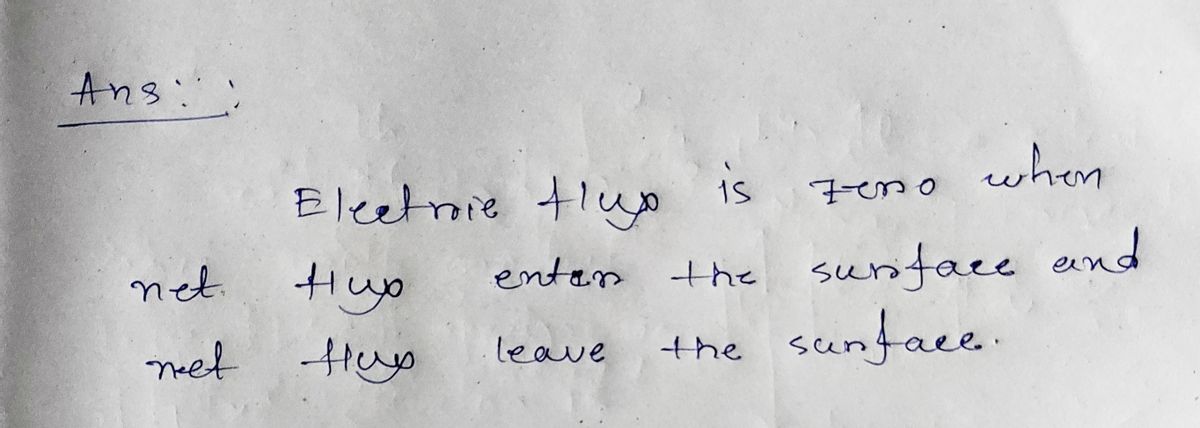 Ans::
Electric flux is zero when
net flux enter the surface and
net flux leave the surface.